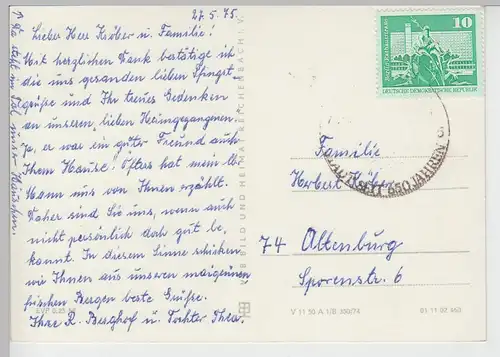 27.5.75.
Lieber Herr Kröber u. Familie!
Mit herzlichen Dank bestätige ich
die uns gesandten lieben Pfingst-
grüße und Ihr treues Gedenken
an unseren lieben Heimgegangenen.
Ja, er war ein guter Freund auch
Ihrem Hause! Öfters hat mein lb.
Mann uns von Ihnen erzählt.
Daher sind Sie uns, wenn auch
nicht persönlich doch gut be-
kannt. In diesem Sinne schicken
wir Ihnen aus unseren maigrünen
frischen Bergen beste Grüße.
Ihre R. Berghof u. Tochter Thea.
EVP 0,25
VEB BILD UND HEIMAT REICHENBACH I. V.
10
DEUTSCHE DEMOKRATISCHE REPUBLIK
650 JAHREN
Familie
Herbert Kröber
74 Altenburg
Sporenstr. 6
V 11 50 A 1/B 350/74 01 11 02 460